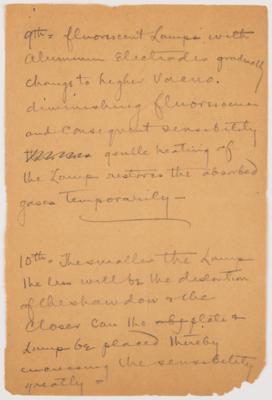 9th = fluorescent Lamps with
Aluminum Electrodes gradually
change to higher Vacuo.
diminishing fluorescence
and consequent sensibility
gentle heating of
the Lamp restores the absorbed
gases Temporarily —
10th = The smaller the Lamp
the less will be the distortion
of the shawdow & the
Closer can the plate &
Lamp be placed thereby
increasing the sensibility
greatly =